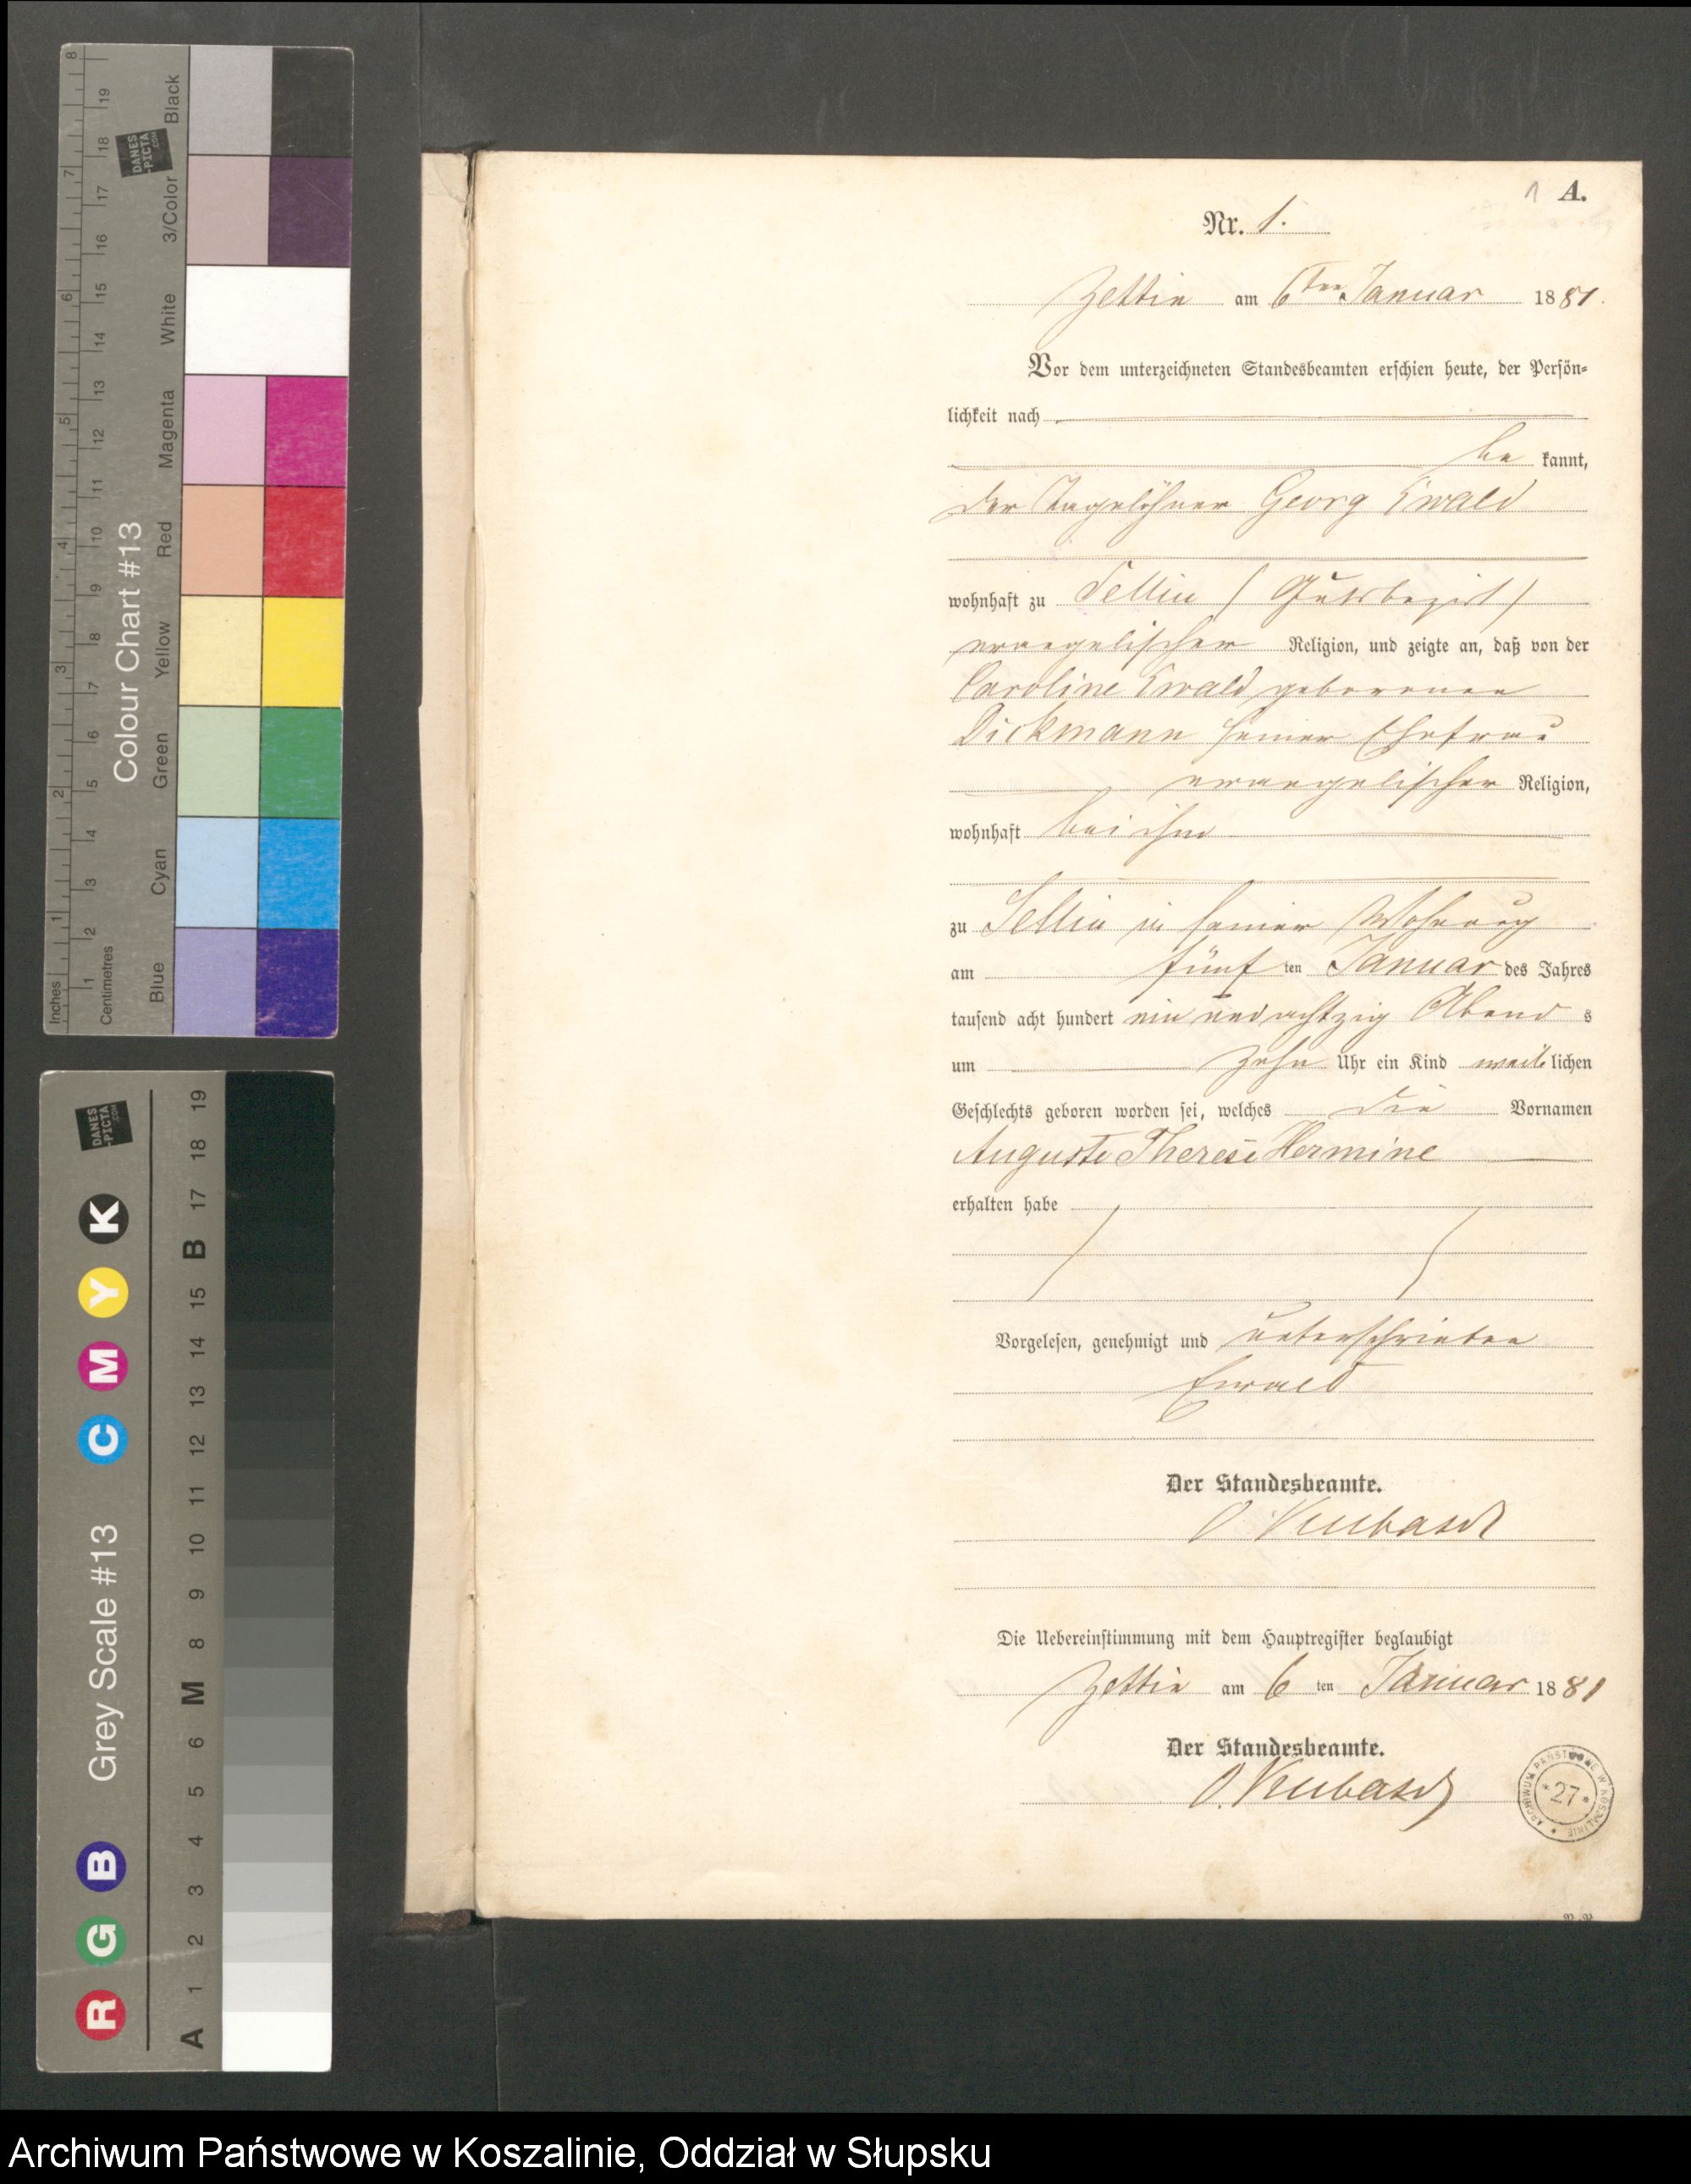 A.
Nr. 1.
Zettin am 6ten Januar 1881.
Vor dem unterzeichneten Standesbeamten erschien heute, der Persön-
lichkeit nach
be kannt,
der Tagelöhner Georg Ewald
wohnhaft zu Sellin (Gutsbezirk)
evangelischer Religion, und zeigte an, daß von der
Caroline Ewald geborenen
Dickmann seiner Ehefrau
evangelischer Religion,
wohnhaft bei ihm
zu Sellin in seiner Wohnung
am fünf ten Januar des Jahres
tausend acht hundert ein und achtzig Abend s
um zehn Uhr ein Kind weib lichen
Geschlechts geboren worden sei, welches die Vornamen
Auguste Therese Hermine
erhalten habe
Vorgelesen, genehmigt und unterschrieben
Ewald
Der Standesbeamte.
Die Uebereinstimmung mit dem Hauptregister beglaubigt
Zettin am 6 ten Januar 1881
Der Standesbeamte.
ARCHIWUM PAŃSTWOWE W KOSZALINIE
*27*
Inches 1 2 3 4 5 6 7 8
Centimetres 1 2 3 4 5 6 7 8 9 10 11 12 13 14 15 16 17 18 19
Colour Chart #13
Blue Cyan Green Yellow Red Magenta White 3/Color Black
DANES-PICTA.COM
Grey Scale #13
R G B C M Y K
A 1 2 3 4 5 6 M 8 9 10 11 12 13 14 15 B 17 18 19
DANES-PICTA.COM
Archiwum Państwowe w Koszalinie, Oddział w Słupsku